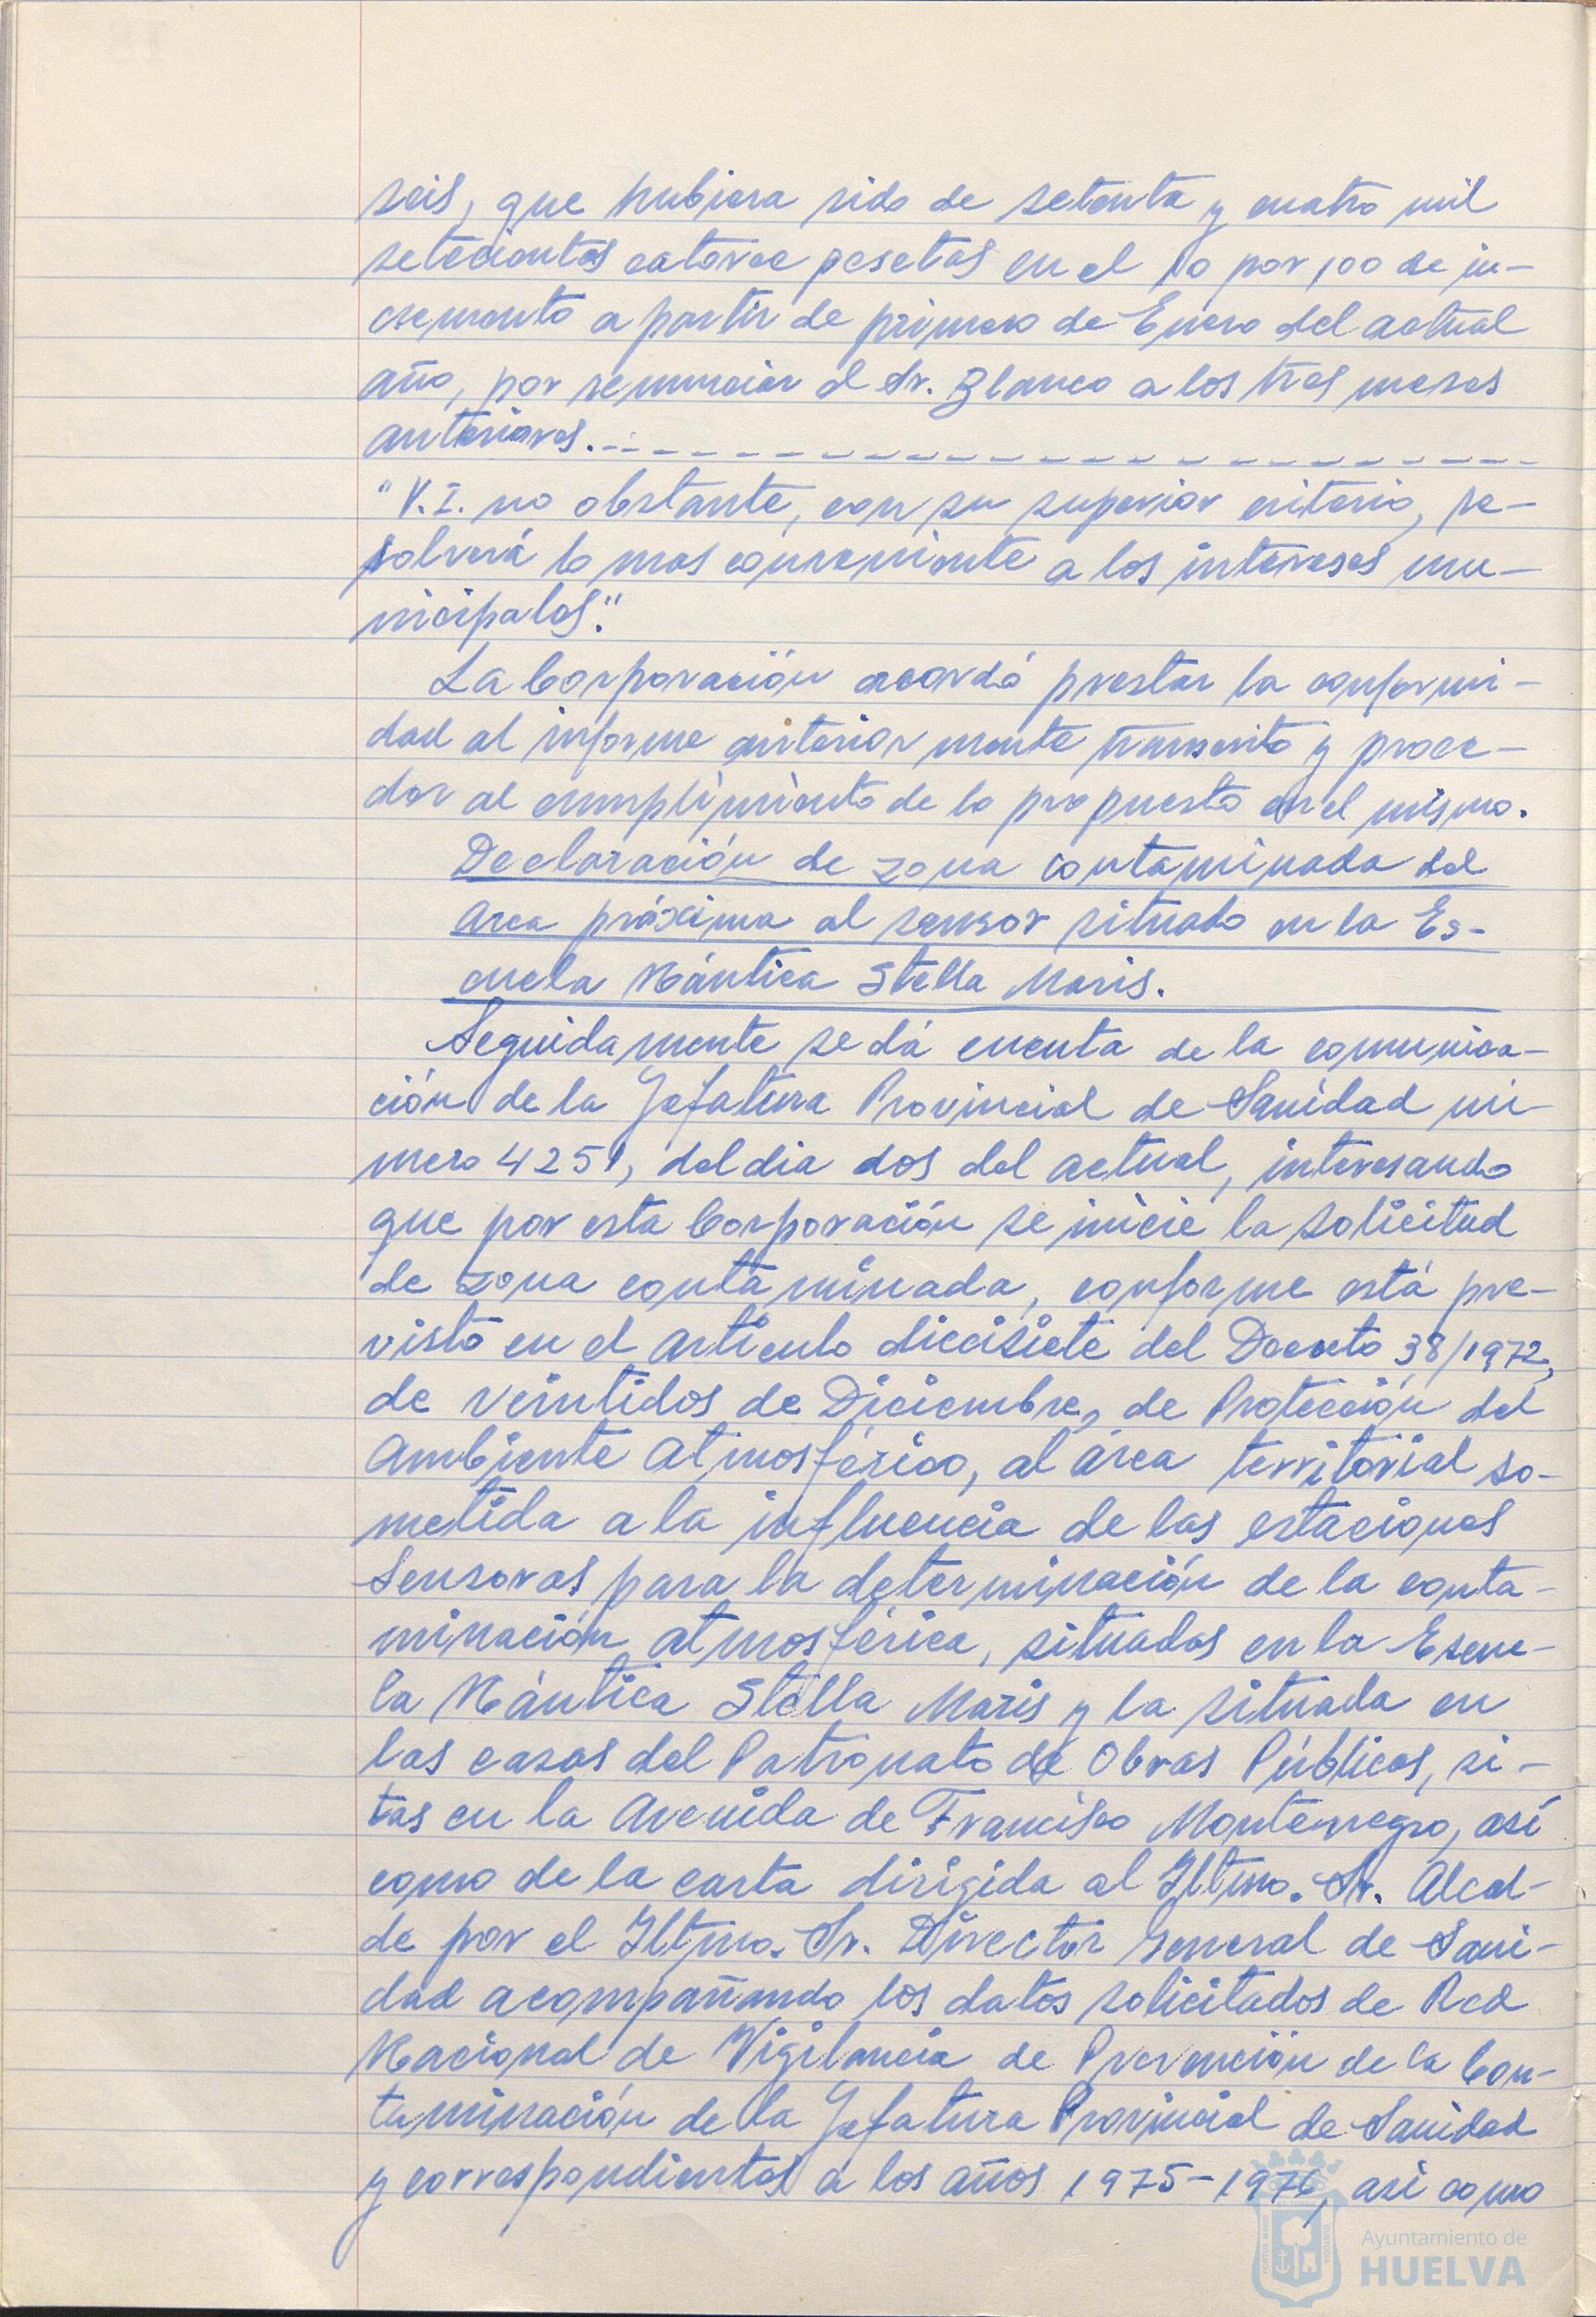 seis, que hubiera sido de setenta y cuatro mil
setecientas catorce pesetas en el 10 por 100 de in-
cremento a partir de primero de Enero del actual
año, por renunciar el Sr. Blanco a los tres meses
anteriores.
"V.I. no obstante, con su superior criterio, re-
solverá lo mas conveniente a los intereses mu-
nicipales."
La Corporación acordó prestar la conformi-
dad al informe anteriormente transcrito y proce-
der al cumplimiento de lo propuesto en el mismo.
Declaración de zona contaminada del
area próxima al sensor situado en la Es-
cuela Náutica Stella Maris.
Seguidamente se dá cuenta de la comunica-
ción de la Jefatura Provincial de Sanidad nú-
mero 4251, del dia dos del actual, interesando
que por esta Corporación se inicie la solicitud
de zona contaminada, conforme está pre-
visto en el artículo diecisiete del Decreto 38/1972,
de veintidos de Diciembre, de Protección del
Ambiente Atmosférico, al área territorial so-
metida a la influencia de las estaciones
Sensoras para la determinación de la conta-
minación atmosférica, situadas en la Escue-
la Náutica Stella Maris y la situada en
las casas del Patronato de Obras Públicas, si-
tas en la Avenida de Francisco Montenegro, así
como de la carta dirigida al Iltmo. Sr. Alcal-
de por el Iltmo. Sr. Director General de Sani-
dad acompañando los datos solicitados de Red
Nacional de Vigilancia de Prevención de la Con-
taminación de la Jefatura Provincial de Sanidad
y correspondientes a los años 1975-1976, así como
Ayuntamiento de
HUELVA